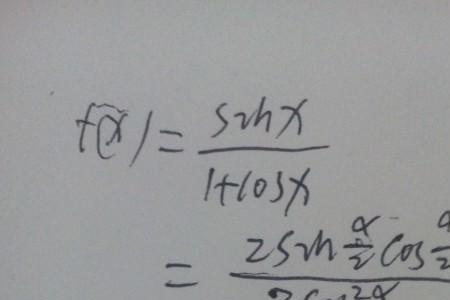 f(x) = sinx / 1+cosx
= 2sin α/2 cos α/2